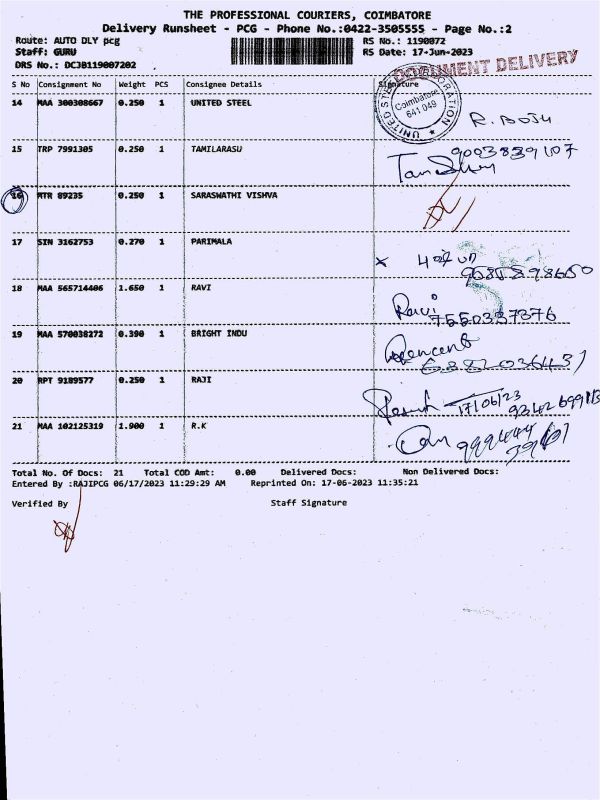 THE PROFESSIONAL COURIERS, COIMBATORE
Delivery Runsheet - PCG - Phone No.:0422-3505555 - Page No.:2
Route: AUTO DLY pcg RS No.: 1190072
Staff: GURU RS Date: 17-Jun-2023
DRS No.: DCJB119007202
DOCUMENT DELIVERY
S No Consignment No Weight PCS Consignee Details Signature
14 MAA 300308667 0.250 1 UNITED STEEL
UNITED STEEL CORPORATION
Coimbatore
641 049
R. BOJU
15 TRP 7991305 0.250 1 TAMILARASU
9003839107
16 MTR 89235 0.250 1 SARASWATHI VISHVA
17 SIN 3162753 0.270 1 PARIMALA
x
18 MAA 565714406 1.650 1 RAVI Ravi
7550337376
19 MAA 570038272 0.390 1 BRIGHT INDU
20 RPT 9189577 0.250 1 RAJI
17/06/23
21 MAA 102125319 1.900 1 R.K
Total No. Of Docs: 21 Total COD Amt: 0.00 Delivered Docs: Non Delivered Docs:
Entered By :RAJIPCG 06/17/2023 11:29:29 AM Reprinted On: 17-06-2023 11:35:21
Verified By Staff Signature